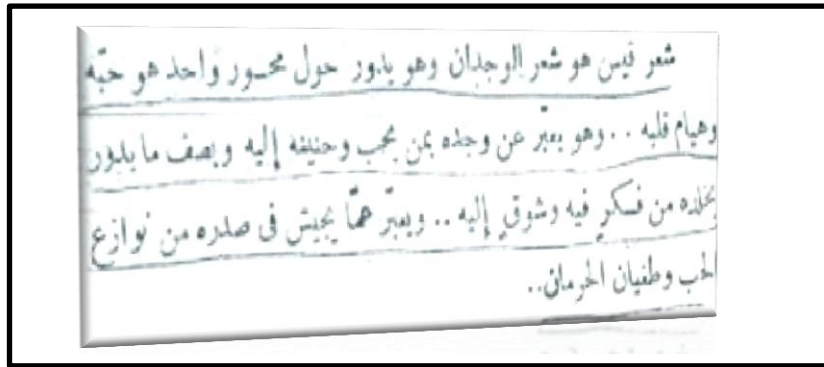 شعر قيس هو شعر الوجدان وهو يدور حول محـور واحد هو حبّه
وهيام قلبه . . وهو يعبّر عن وجده بمن يحب وحنينه إليه ويصف ما يدور
بخلده من فـكرٍ فيه وشوقٍ إليه .. ويعبّر عمّا يجيش فى صدره من نوازع
الحب وطغيان الحرمان..